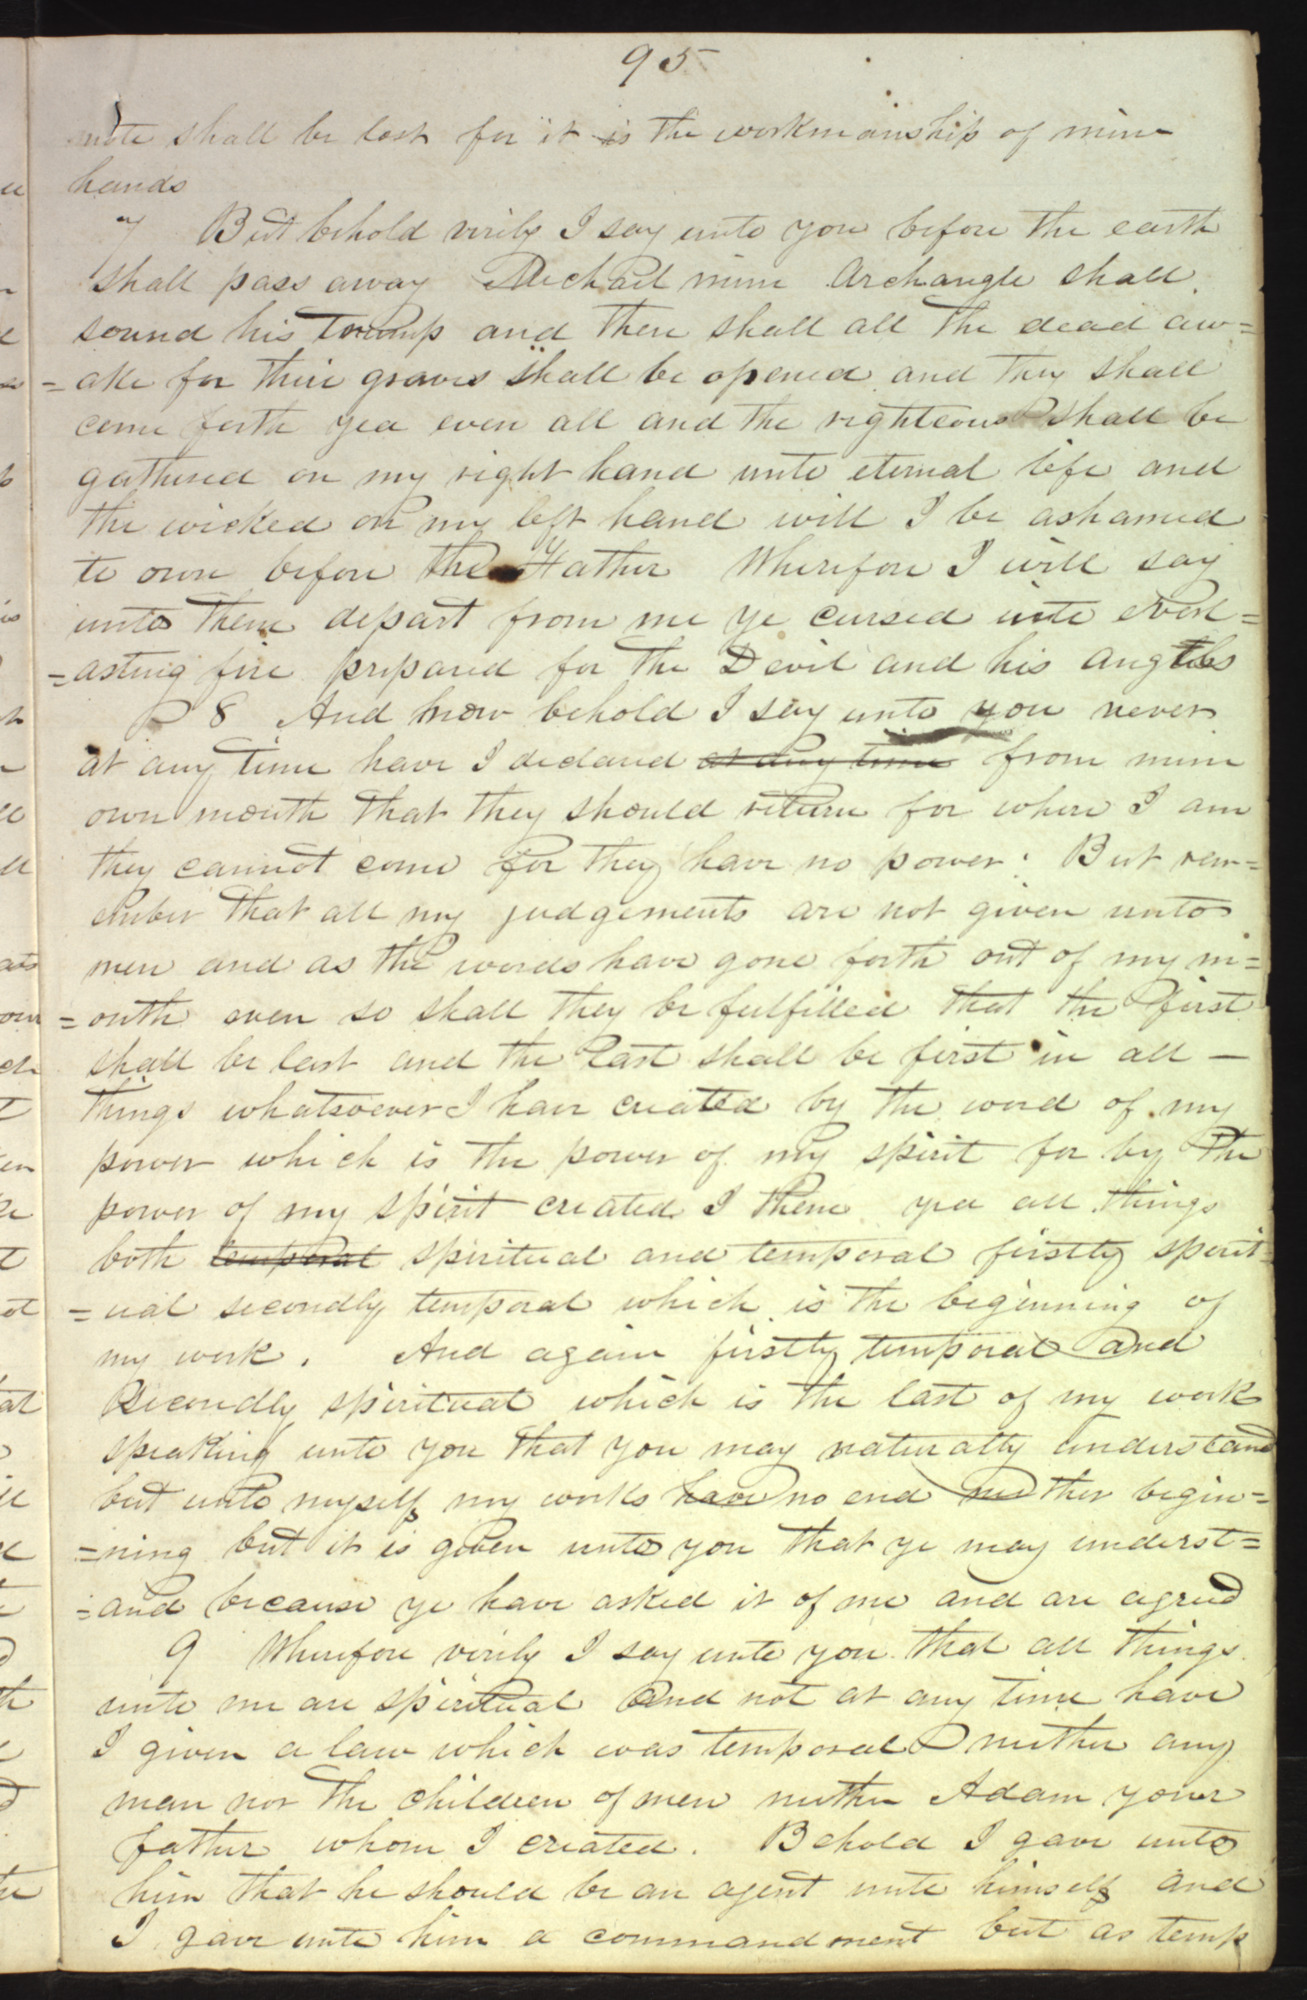 95
mote shall be lost for it is the workmanship of mine
hands
7 But behold verily I say unto you before the earth
shall pass away Michael mine Archangle shall
sound his trump and then shall all the dead aw=
=ake for their graves shall be opened and they shall
come forth yea even all and the righteous shall be
gathered on my right hand unto eternal life and
the wicked on my left hand will I be ashamed
to own before the Father Wherefore I will say
unto them depart from me ye cursed into everl=
=asting fire prepared for the Devil and his angels
8 And now behold I say unto you never
at any time have I declared at any time from mine
own mouth that they should return for where I am
they cannot come for they have no power. But rem=
ember that all my judgements are not given unto
men and as the words have gone forth out of my m=
=outh even so shall they be fulfilled that the first
shall be last and the last shall be first in all —
things whatsoever I have created by the word of my
power which is the power of my spirit for by the
power of my spirit created I them yea all things
both temporal spiritual and temporal firstly spirit=
=ual secondly temporal which is the beginning of
my work. And again firstly temporal and
secondly spiritual which is the last of my work
speaking unto you that you may naturally understand
but unto myself my works have no end neither begin=
=ning but it is given unto you that ye may underst=
=and because ye have asked it of me and are agreed
9 Wherefore verily I say unto you that all things
unto me are spiritual and not at any time have
I given a law which was temporal neither any
man nor the children of men neither Adam your
father whom I created. Behold I gave unto
him that he should be an agent unto himself and
I gave unto him a commandment but as temp